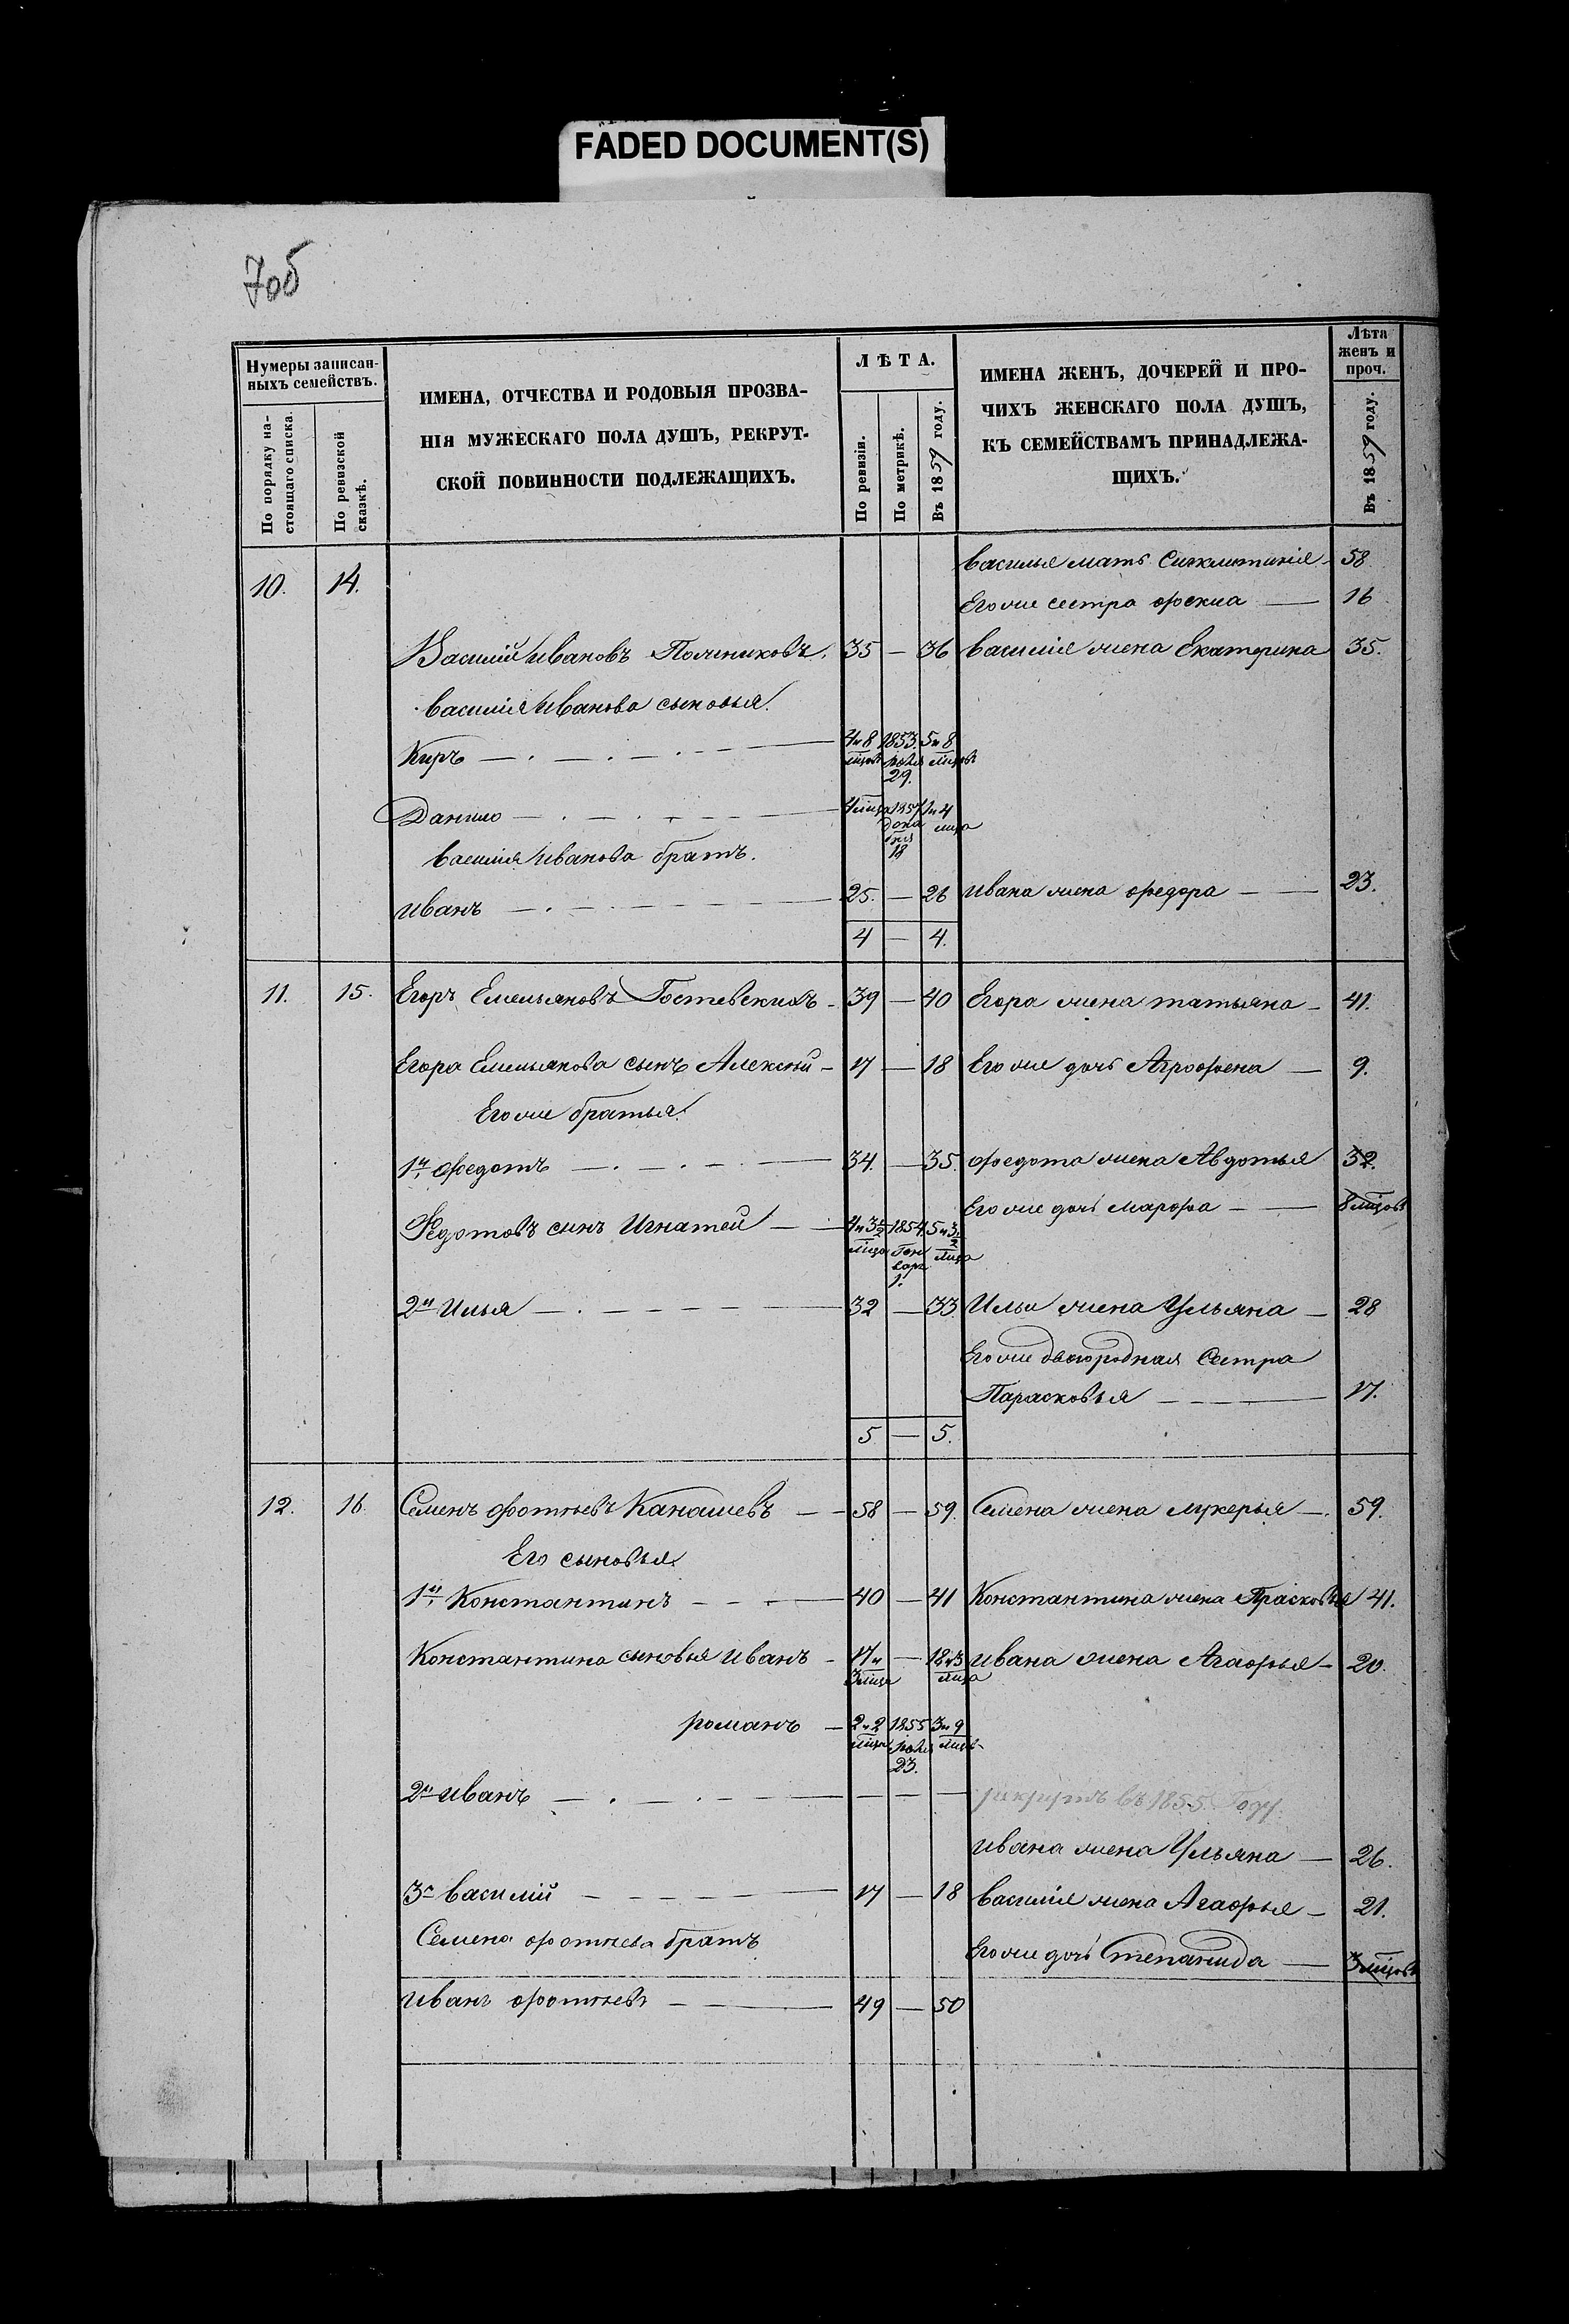 FADED DOCUMENT(S)
7об
Нумеры записан-
ныхъ семействъ.
По порядку на-
стоящаго списка.
По ревизской
сказкѣ.
ИМЕНА, ОТЧЕСТВА И РОДОВЫЯ ПРОЗВА-
НІЯ МУЖЕСКАГО ПОЛА ДУШЪ, РЕКРУТ-
СКОЙ ПОВИННОСТИ ПОДЛЕЖАЩИХЪ.
ЛѢТА.
По ревизіи.
По метрикѣ.
Въ 1859 году.
ИМЕНА ЖЕНЪ, ДОЧЕРЕЙ И ПРО-
ЧИХЪ ЖЕНСКАГО ПОЛА ДУШЪ,
КЪ СЕМЕЙСТВАМЪ ПРИНАДЛЕЖА-
ЩИХЪ.
Лѣта
женъ и
проч.
Въ 1859 году.
Василья мать 58
10. 14.
Его же сестра 16
Василій Ивановъ 35 — 36 Василія жена Екатерина 35.
Василія Иванова сыновья.
Киръ 4 и 8 1853. 5 и 8
29.
Данило 1857 1 и 4
18
Василія Иванова братъ.
Иванъ 25. — 26 Ивана жена Федора 23.
4 — 4.
11. 15. Егоръ Емельяновъ Гостевскихъ 39 — 40 Егора жена Татьяна 41.
Егора Емельянова сынъ Алексѣй 17 — 18 Его же дочь Агрофена 9.
Его же братья.
1й Федотъ 34. — 35. Федота жена Авдотья 32.
Его же дочь Марфа 8 мцовъ
Федотовъ сынъ Игнатей 1854. 1.
2й Илья 32 — 33 Ильи жена Ульяна 28
Его же двоюродная Сестра
Парасковья 17.
5 — 5.
12. 16. Семенъ Фотѣевъ Канашевъ 58 — 59. Семена жена Лукерья 59.
Его сыновья
1й Константинъ 40 — 41 Константина жена Прасковья 41.
Константина сыновья Иванъ 17 и — 18 и 3 Ивана жена Агафья 20.
3 мца мца
романъ 2 и 2 1855 3 и 9
23.
2й Иванъ — — — рекрутъ въ 1855 Году.
Ивана жена Ульяна 26.
3й Василій 17 — 18 Василія жена Агафья 21.
Семена Фотѣева братъ
Его же дочь Степанида 3 мцовъ
Иванъ Фотѣевъ 49 — 50